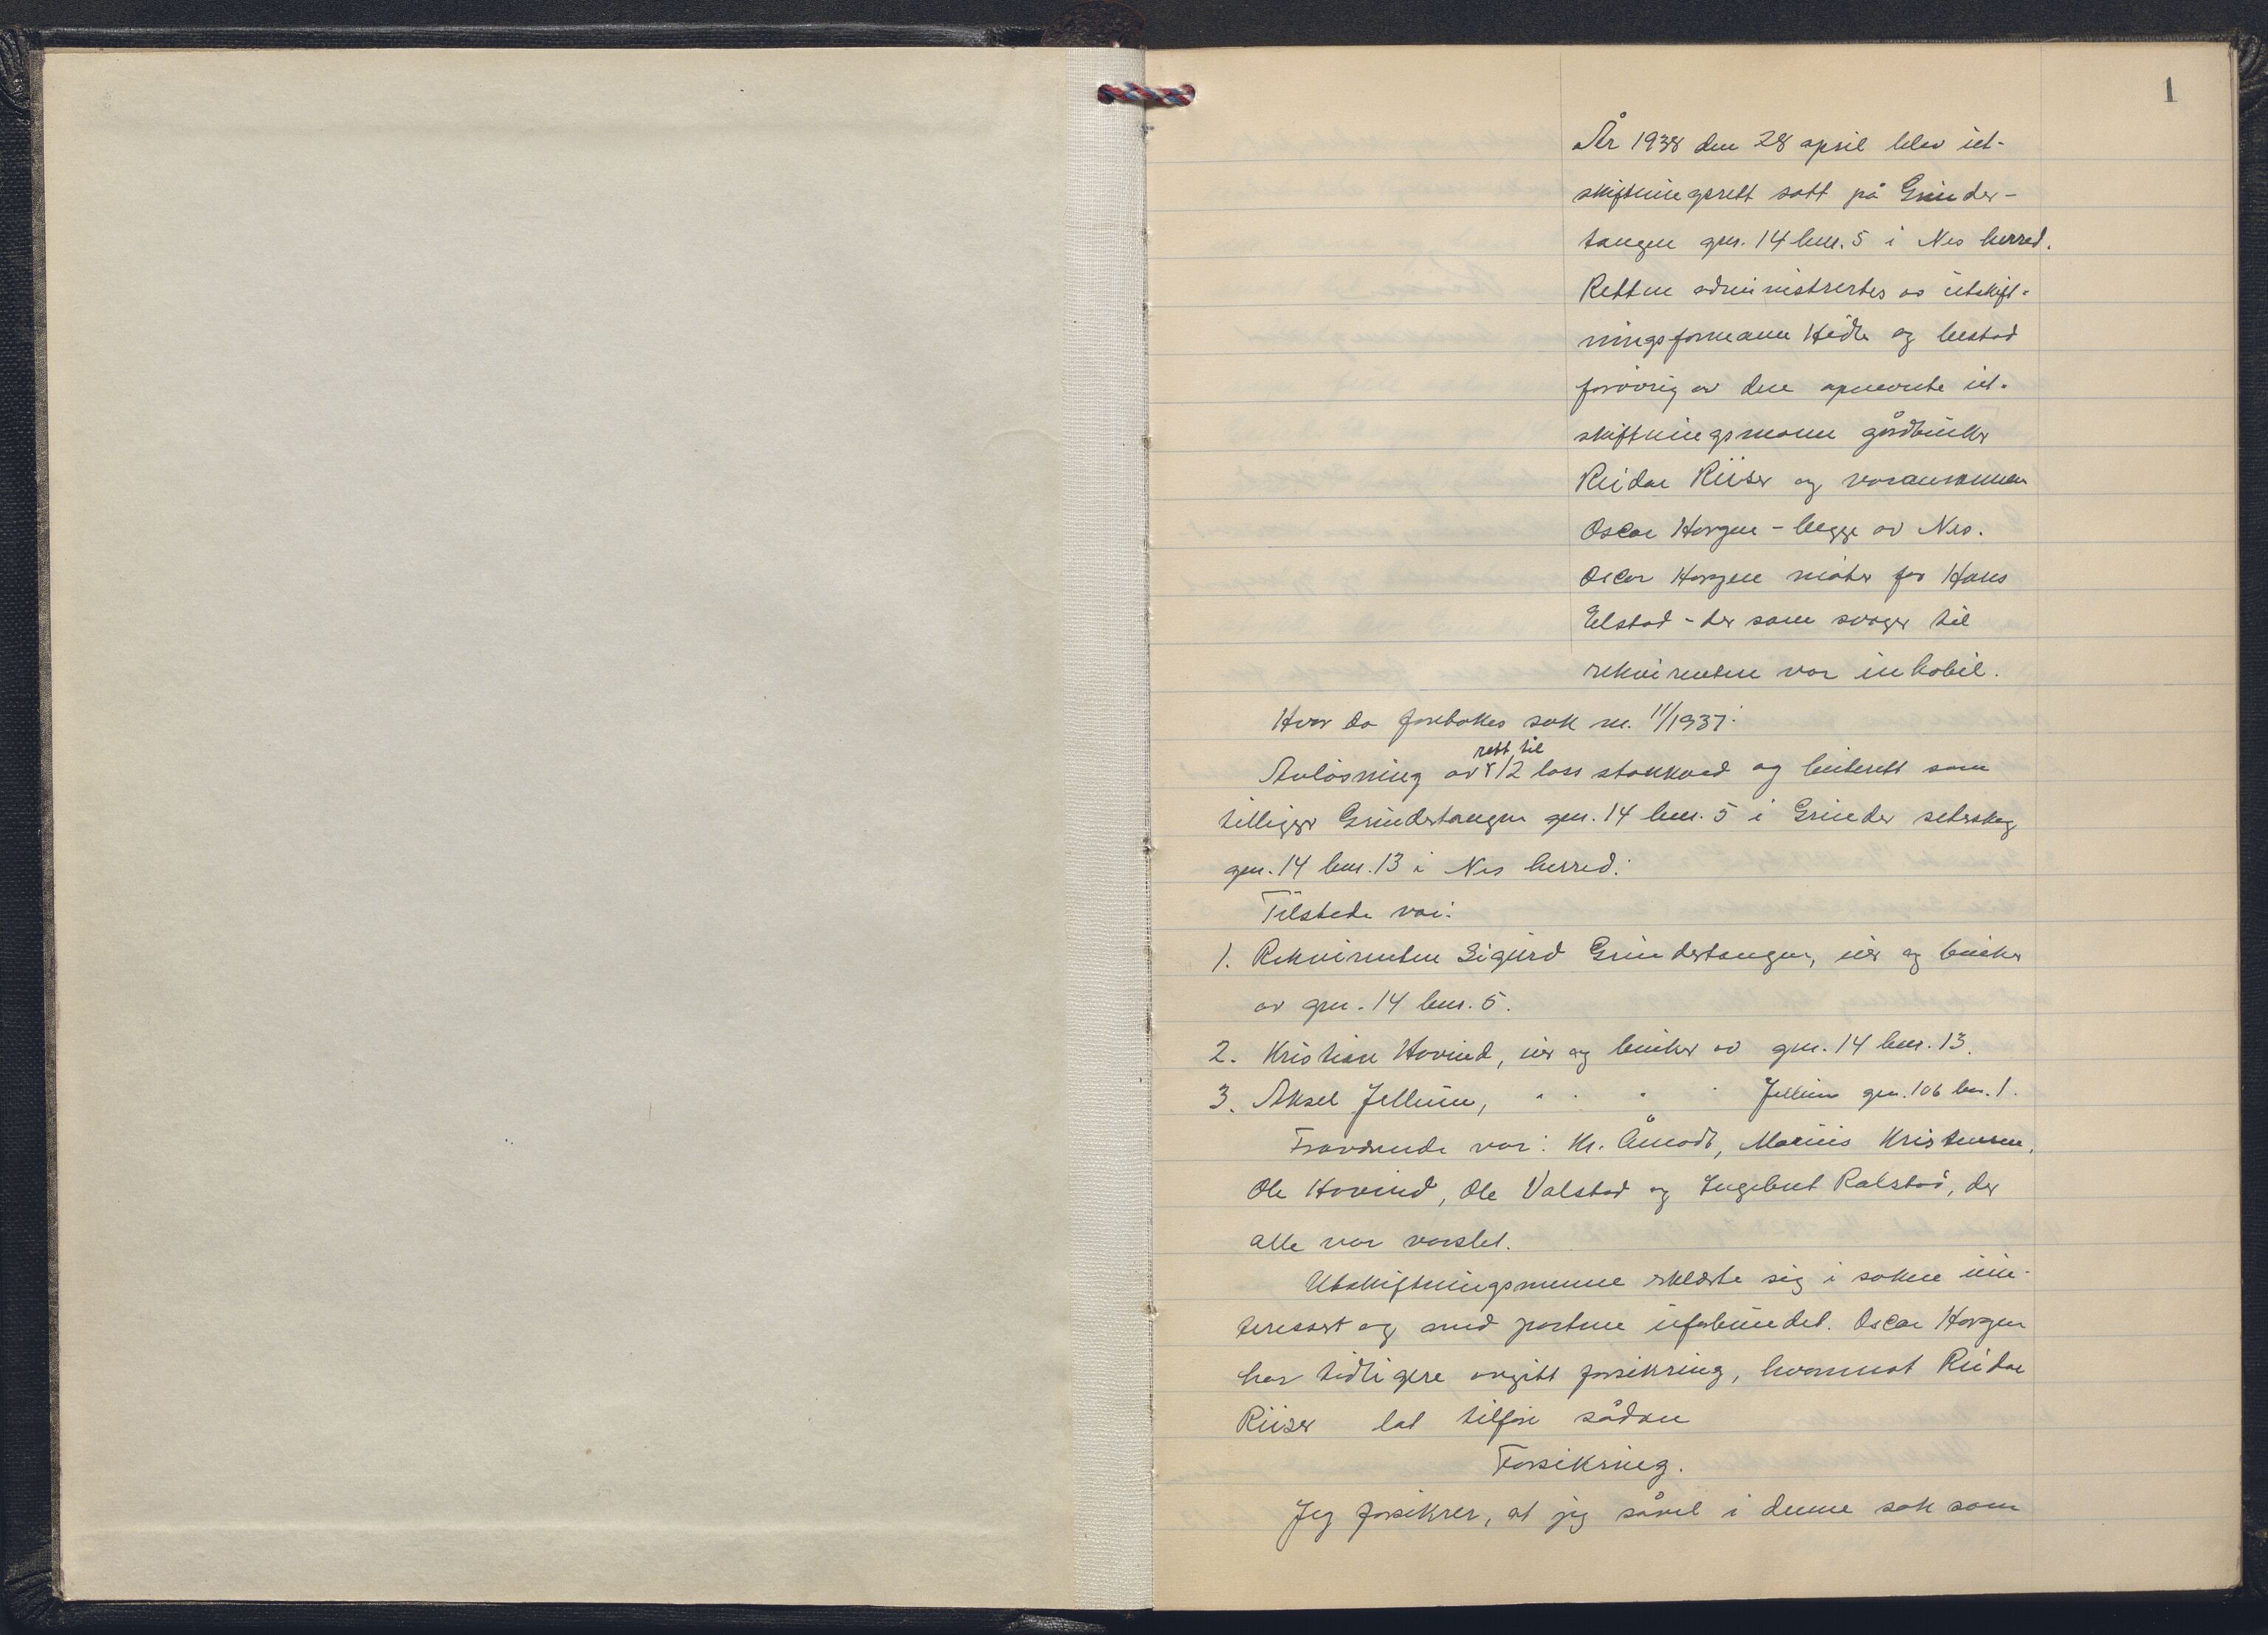 1
År 1938 den 28 april blev ut-
skiftningsrett satt på Grinder-
tangen gnr. 14 bnr. 5 i Nes herred.
Retten administrertes av utskift-
ningsformann Hedle og bestod
forövrig av den opnevnte ut-
skiftningsmann gårdbruker
Reidar Riiser og varamannen
Oscar Horgen - begge av Nes.
Oscar Horgen möter for Hans
Elstad - der som svoger til
rekvirenten var inhabil.
Hvor da foretokes sak nr. 11/1937:
Avlösning av rett til 12 lass stakkved og beiterett som
tilligger Grindertangen gnr. 14 bnr. 5 i Grinder seterskog
gnr. 14 bnr. 13 i Nes herred:
Tilstede var:
1. Rekvirenten Sigurd Grindertangen, eier og bruker
av gnr. 14 bnr. 5.
2. Kristian Hovind, eier og bruker av gnr. 14 bnr. 13.
3. Aksel Jellum, " " " " Jellum gnr. 106 bnr. 1.
Fraværende var: Kr. Åmodt, Marius Kristensen,
Ole Hovind, Ole Valstad og Ingebret Ralstad, der
alle var varslet.
Utskiftningsmenne erklærte sig i saken uin-
teressert og med partene uforbundet. Oscar Horgen
har tidligere avgitt forsikring, hvorimot Reidar
Riiser lot tilföre sådan
Forsikring.
Jeg forsikrer, at jeg såvel i denne sak som